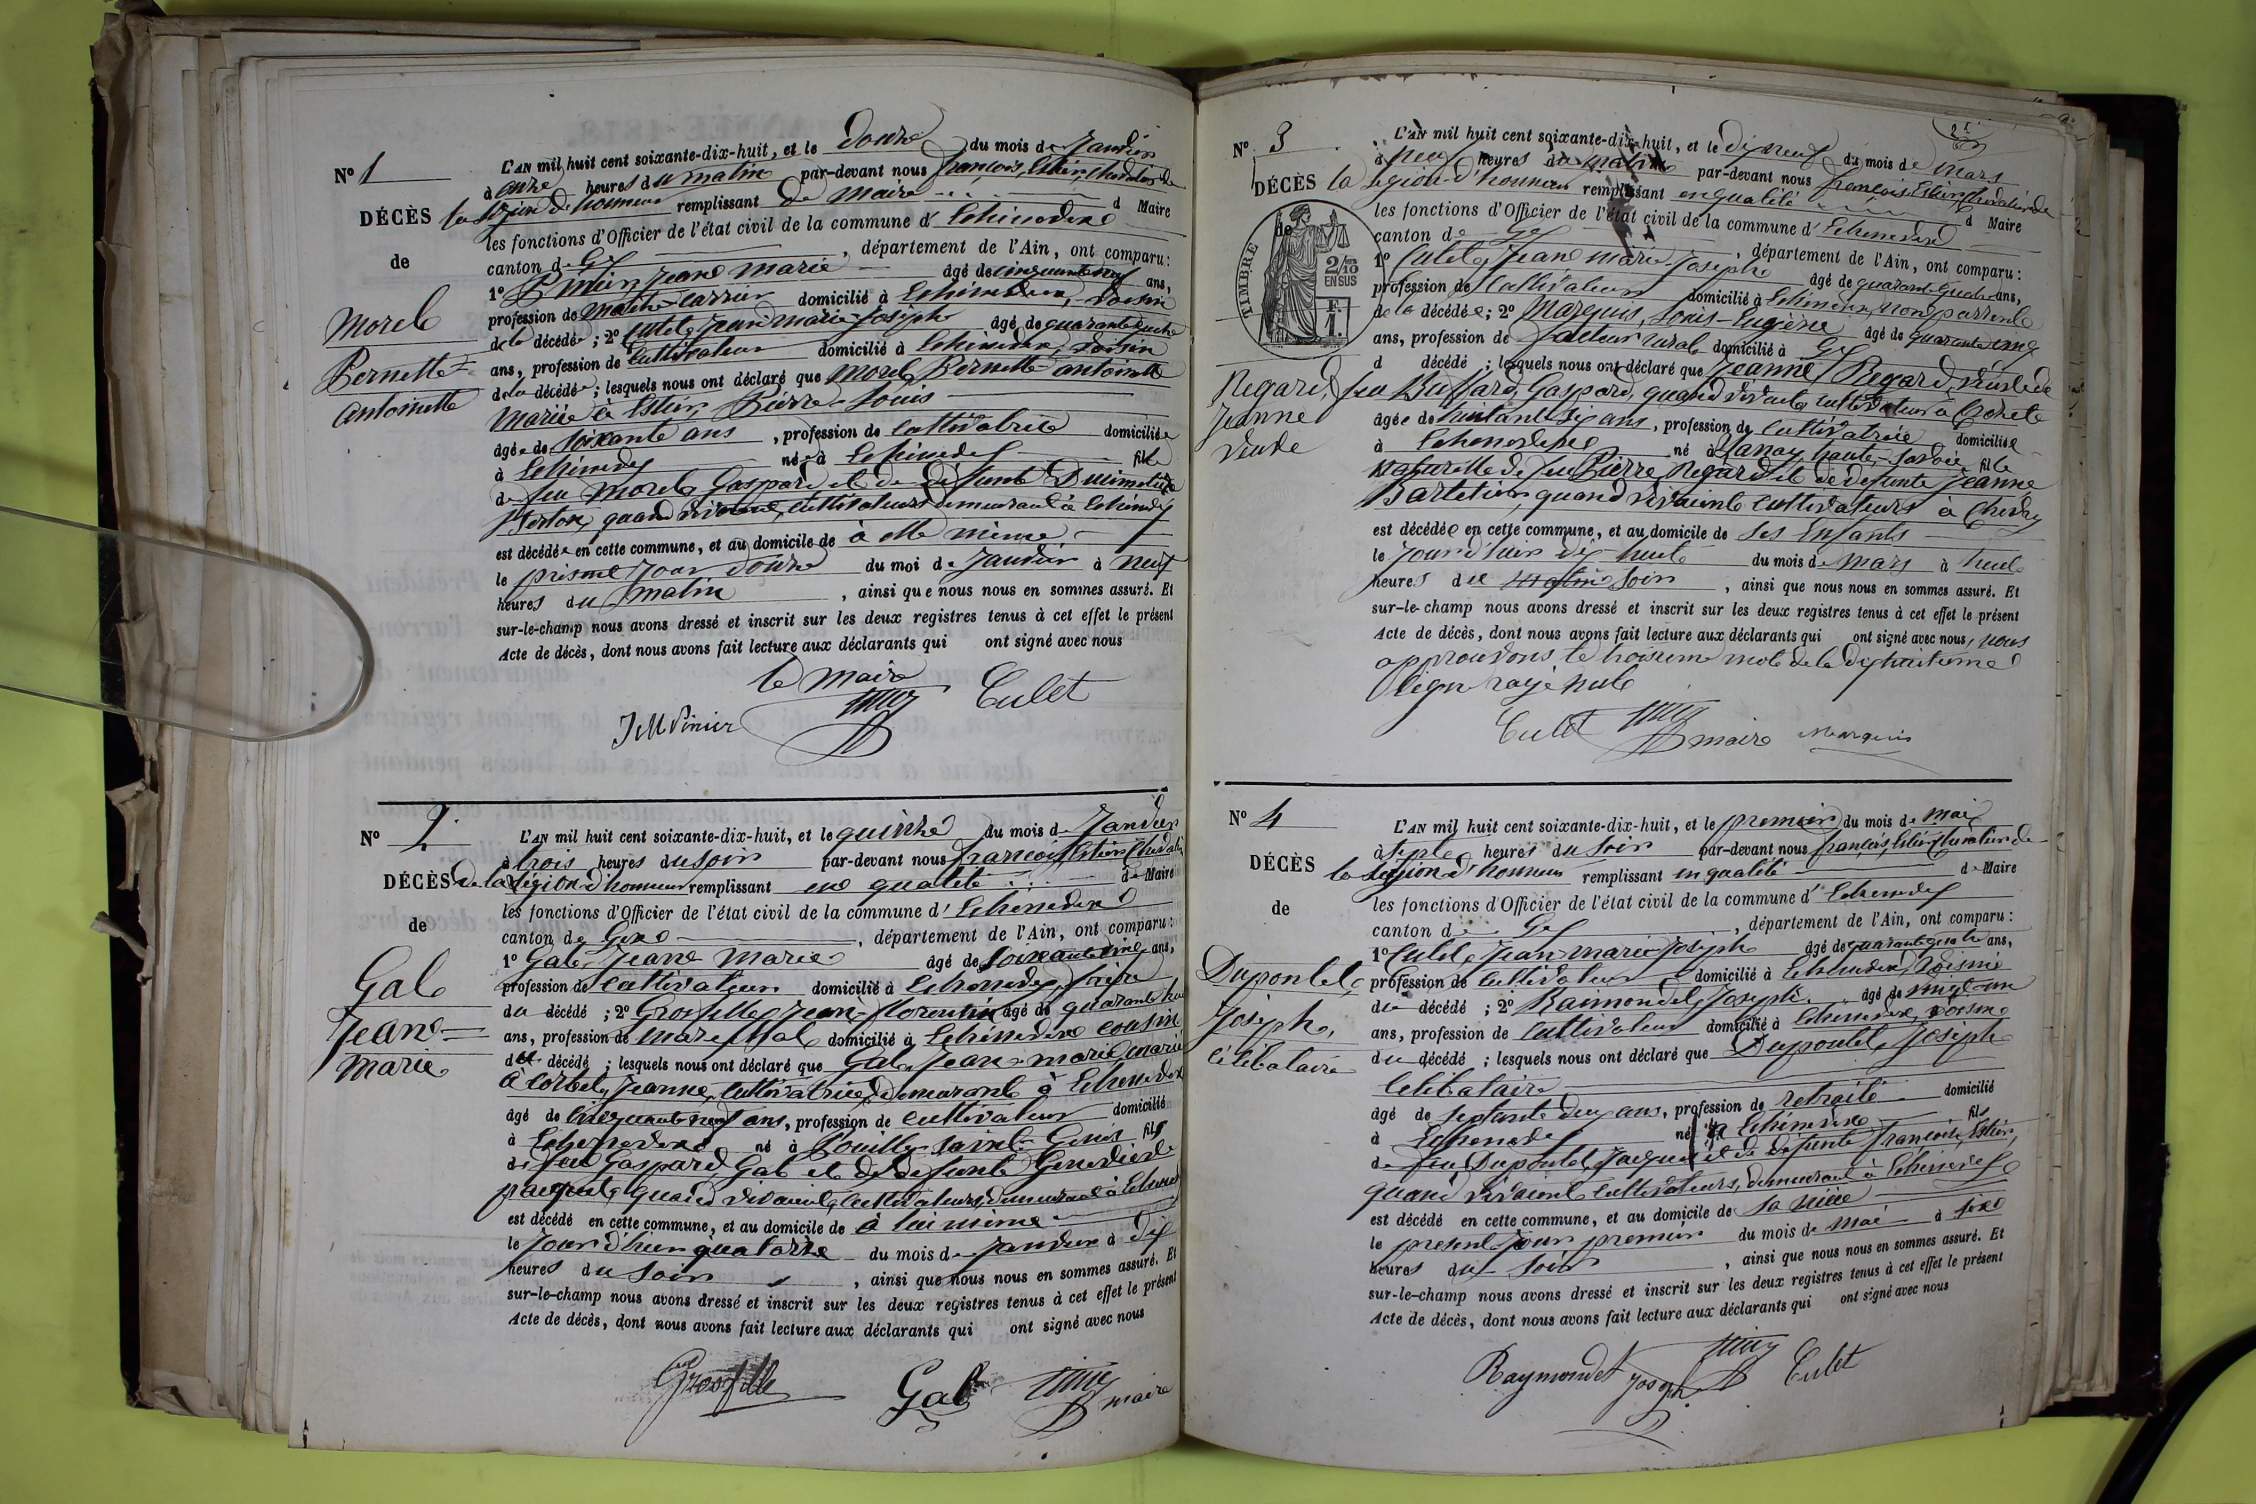 N° 1
DÉCÈS
de
Morel
Pernette
Antoinette
L'AN mil huit cent soixante-dix-huit, et le douze du mois de Janvier
à onze heures du matin par-devant nous françois Estier, Chevalier de
la Légion d'honneur remplissant de Maire d Maire
les fonctions d'Officier de l'état civil de la commune d'Echenevex
canton de Gex, département de l'Ain, ont comparu :
1° Pinier Jean Marie âgé de cinquante neuf ans,
profession de maître carrier domicilié à Echenevex, voisin
de la décédée ; 2° Culet Jean marie Joseph âgé de quarante
ans, profession de Cultivateur domicilié à Echenevex, voisin
de la décédée ; lesquels nous ont déclaré que Morel Pernette antoinette
Mariée à Estier Pierre Louis
âgée de soixante ans, profession de cultivatrice domiciliée
à Echenevex née à Echenevex fille
de feu Morel Gaspard et de défunte
quand vivaient, cultivateurs demeurant à Echenevex
est décédée en cette commune, et au domicile de à elle même
le présent jour douze du moi de Janvier à neuf
heures du matin, ainsi que nous nous en sommes assuré. Et
sur-le-champ nous avons dressé et inscrit sur les deux registres tenus à cet effet le présent
Acte de décès, dont nous avons fait lecture aux déclarants qui ont signé avec nous
le maire
JM Pinier Culet
N° 2
DÉCÈS
de
Gal
Jean
Marie
L'AN mil huit cent soixante-dix-huit, et le quinze du mois de Janvier
à trois heures du soir par-devant nous françois Estier Chevalier
de la Légion d'honneur remplissant en qualité de Maire
les fonctions d'Officier de l'état civil de la commune d'Echenevex
canton de Gex, département de l'Ain, ont comparu :
1° Gal Jean Marie âgé de soixante cinq ans,
profession de cultivateur domicilié à Echenevex, frère
du décédé ; 2° Grosfilley Jean Florentin âgé de quarante
ans, profession de marechal domicilié à Echenevex cousin
du décédé ; lesquels nous ont déclaré que Gal Jean marie marié
à Corbet Jeanne, cultivatrice, demeurant à Echenevex
âgé de cinquante neuf ans, profession de cultivateur domicilié
à Echenevex né à Pouilly Saint Genis fils
de feu Gaspard Gal et de défunte Genevieve
quand vivaient, cultivateurs, demeurant à
est décédé en cette commune, et au domicile de à lui même
le Jour d'hier quatorze du mois de Janvier à dix
heures du soir, ainsi que nous nous en sommes assuré. Et
sur-le-champ nous avons dressé et inscrit sur les deux registres tenus à cet effet le présent
Acte de décès, dont nous avons fait lecture aux déclarants qui ont signé avec nous
Gal maire
N° 3
DÉCÈS
de
TIMBRE
2/10
EN SUS
F.
1.
Regard,
Jeanne
Veuve
L'AN mil huit cent soixante-dix-huit, et le dix neuf du mois de Mars
à neuf heures du matin par-devant nous françois Estier, Chevalier de
la Légion d'honneur remplissant en qualité d Maire
les fonctions d'Officier de l'état civil de la commune d'Echenevex
canton de Gex, département de l'Ain, ont comparu :
1° Culet, Jean marie Joseph âgé de quarante quatre ans,
profession de Cultivateur domicilié à Echenevex, non parent
de la décédée ; 2° Marquis, Louis-Eugène âgé de quarante cinq
ans, profession de facteur rural domicilié à Gex
d décédé ; lesquels nous ont déclaré que Jeanne Regard, veuve de
feu Buffard, Gaspard, quand vivait cultivateur à Crozet
âgée de huitante six ans, profession de Cultivatrice domiciliée
à Echenevex né à haute-Savoie fille
naturelle de feu Pierre Regard et de défunte Jeanne
quand vivaient cultivateurs à Chevry
est décédée en cette commune, et au domicile de Ses Enfants
le Jour d'hier dix huit du mois de Mars à huit
heures du matin soir, ainsi que nous nous en sommes assuré. Et
sur-le-champ nous avons dressé et inscrit sur les deux registres tenus à cet effet le présent
Acte de décès, dont nous avons fait lecture aux déclarants qui ont signé avec nous, nous
approuvons le troisieme mot de la dix huitieme
ligne rayé nul
Culet maire Marquis
N° 4
DÉCÈS
de
Dupontet,
Joseph,
célibataire
L'AN mil huit cent soixante-dix-huit, et le premier du mois de Mai
à sept heures du soir par-devant nous françois, Estier Chevalier de
la Légion d'honneur remplissant en qualité de Maire
les fonctions d'Officier de l'état civil de la commune d'Echenevex
canton de Gex, département de l'Ain, ont comparu :
1° Culet, Jean-marie Joseph âgé de quarante quatre ans,
profession de cultivateur domicilié à Echenevex, voisin
du décédé ; 2° Raimondet, Joseph âgé de vingt-un
ans, profession de Cultivateur domicilié à Echenevex, voisin
du décédé ; lesquels nous ont déclaré que Dupontet, Joseph
Célibataire
âgé de septante deux ans, profession de retraité domicilié
à Echenevex né à Echenevex fils
de feu Dupontet Jacques et de défunte françoise Estier,
quand vivaient cultivateurs, demeurant à Echenevex
est décédé en cette commune, et au domicile de sa nièce
le présent jour premier du mois de Mai à
heures du soir, ainsi que nous nous en sommes assuré. Et
sur-le-champ nous avons dressé et inscrit sur les deux registres tenus à cet effet le présent
Acte de décès, dont nous avons fait lecture aux déclarants qui ont signé avec nous
Raymondet Joseph Culet